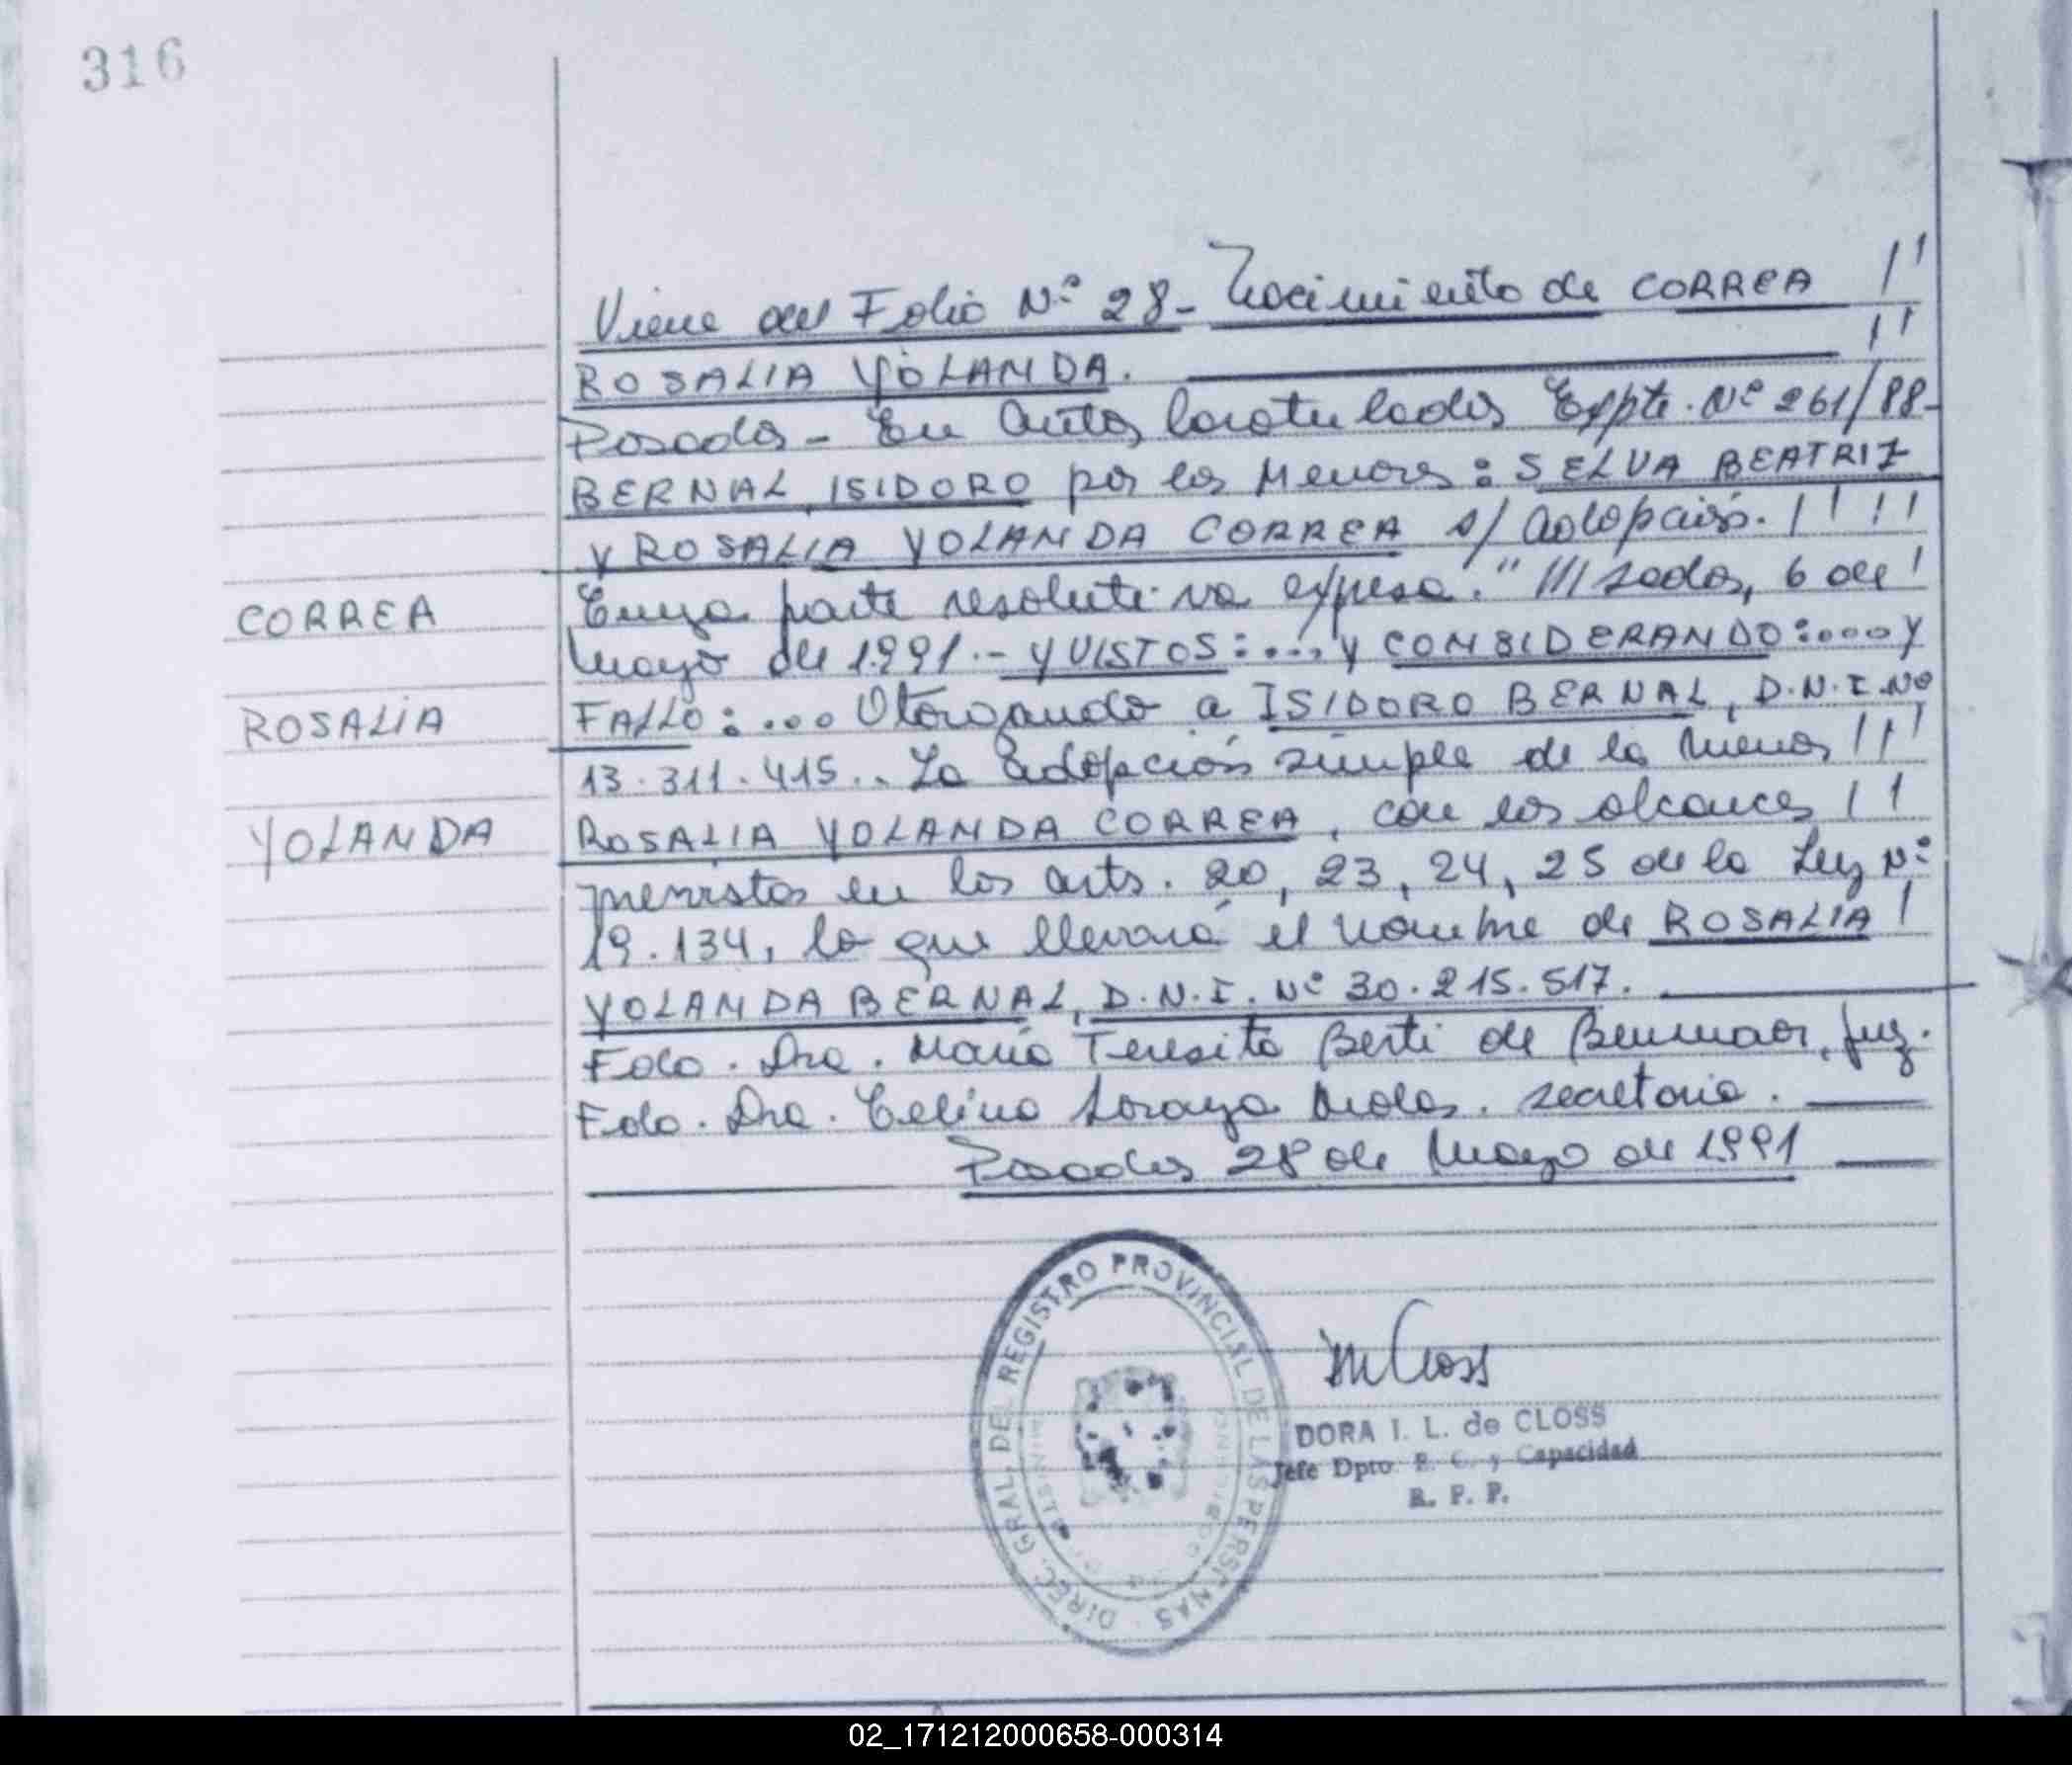 316
Viene del Folio Nº 28 - Nacimiento de CORREA !!
ROSALIA YOLANDA. !!
Posadas - En autos Caratulados Expte. Nº 261/88 -
BERNAL, ISIDORO por los Menores: SELVA BEATRIZ
Y ROSALIA YOLANDA CORREA s/ adopción. ! ! ! !
CORREA
Cuya parte resolutiva expresa: "///sadas, 6 de !
mayo de 1.991.- Y VISTOS: ... Y CONSIDERANDO: .... Y
ROSALIA
FALLO: ... Otorgando a ISIDORO BERNAL, D.N.I. Nº
13.311.415.. La adopción simple de la menor ! ! !
YOLANDA
ROSALIA YOLANDA CORREA, con los alcances ! !
previstos en los arts. 20, 23, 24, 25 de la Ley Nº
19.134, la que llevará el nombre de ROSALIA !
YOLANDA BERNAL, D.N.I. Nº 30.215.517.
Fdo. Dra. María Teresita Berti de Juez.
Fdo. Dra. Celina secretaria.
Posadas 28 de Mayo de 1991
DIREC. GRAL. DEL REGISTRO PROVINCIAL DE LAS PERSONAS
DORA I. L. de CLOSS
Jefe Dpto. E. C. y Capacidad
R. P. P.
02_171212000658-000314